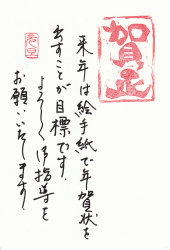 賀正
来年は絵手紙で年賀状を
出すことが目標です。
よろしく御指導を
お願いいたします。
元旦